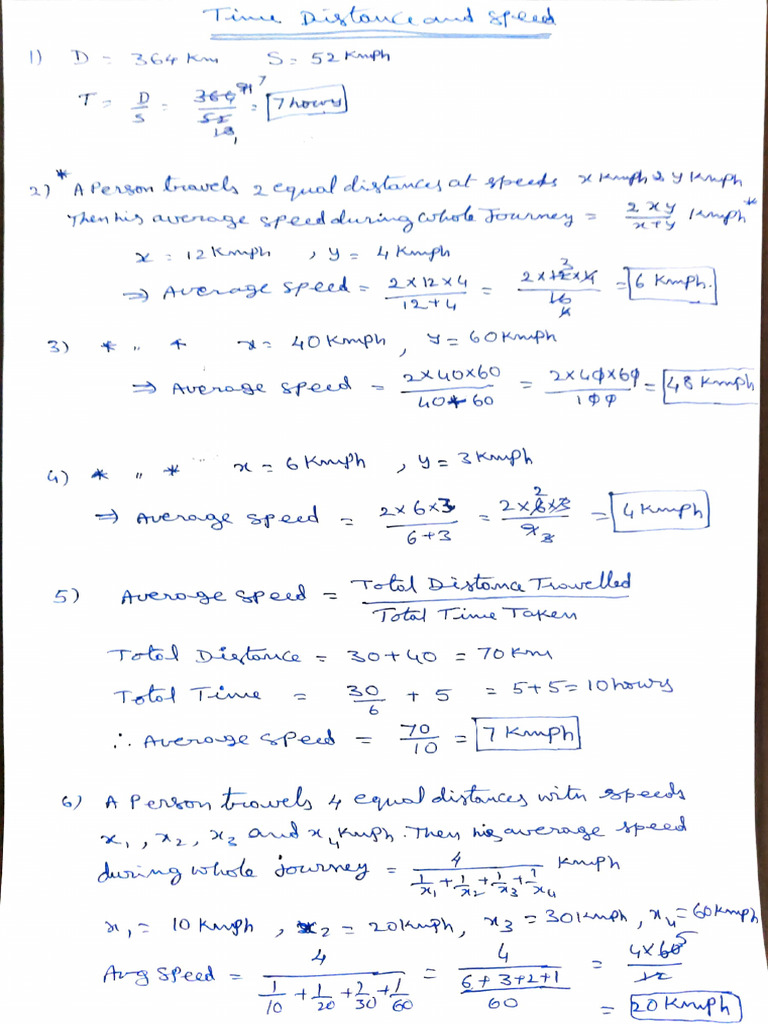 Time Distance and Speed
1) D = 364 Km S = 52 Kmph
T = D/S = 364/52 = 7 hours
2) * A Person travels 2 equal distances at speeds x Kmph & y Kmph
Then his average speed during whole Journey = 2xy/x+y Kmph *
x = 12 Kmph , y = 4 Kmph
⇒ Average Speed = 2×12×4/12+4 = 2×12×4/16 = 6 Kmph.
3) * " * x = 40 Kmph , y = 60 Kmph
⇒ Average Speed = 2×40×60/40+60 = 2×40×60/100 = 48 Kmph
4) * " * x = 6 Kmph , y = 3 Kmph
⇒ Average Speed = 2×6×3/6+3 = 2×6×3/9 = 4 Kmph
5) Average Speed = Total Distance Travelled/Total Time Taken
Total Distance = 30+40 = 70 Km
Total Time = 30/6 + 5 = 5+5 = 10 hours
∴ Average Speed = 70/10 = 7 Kmph
6) A Person travels 4 equal distances with speeds
x₁, x₂, x₃ and x₄ Kmph. Then his average speed
during whole journey = 4/(1/x₁ + 1/x₂ + 1/x₃ + 1/x₄) Kmph
x₁ = 10 Kmph , x₂ = 20 Kmph, x₃ = 30 Kmph, x₄ = 60 Kmph
Avg Speed = 4/(1/10 + 1/20 + 1/30 + 1/60) = 4/((6+3+2+1)/60) = 4×60/12
= 20 Kmph